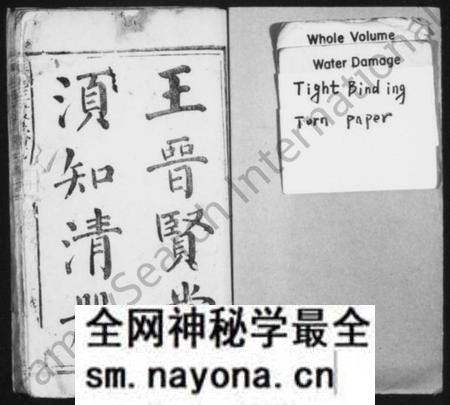 王晉賢
湏知清
Whole Volume
Water Damage
Tight Binding
Torn paper
amilySearch International
全网神秘学最全
sm.nayona.cn